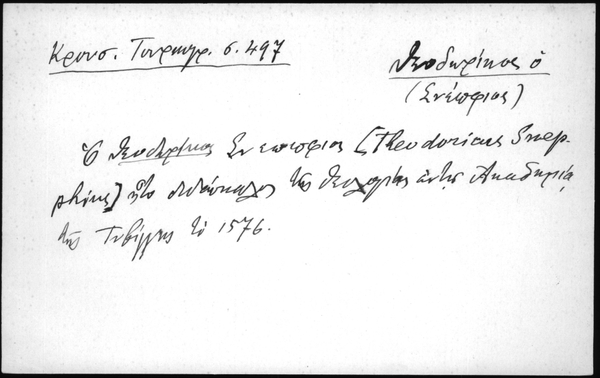 Κρουσ. Τουρκογρ. σ. 497
Θεοδώρικος ὁ
(Σνέπφιος)
Ὁ Θεοδώρικος Σνέπφιος [Theodoricus Snep-
phius] ἦτο διδάσκαλος τῆς θεολογίας ἐν τῇ Ἀκαδημίᾳ
τῆς Τυβίγγης τὸ 1576.